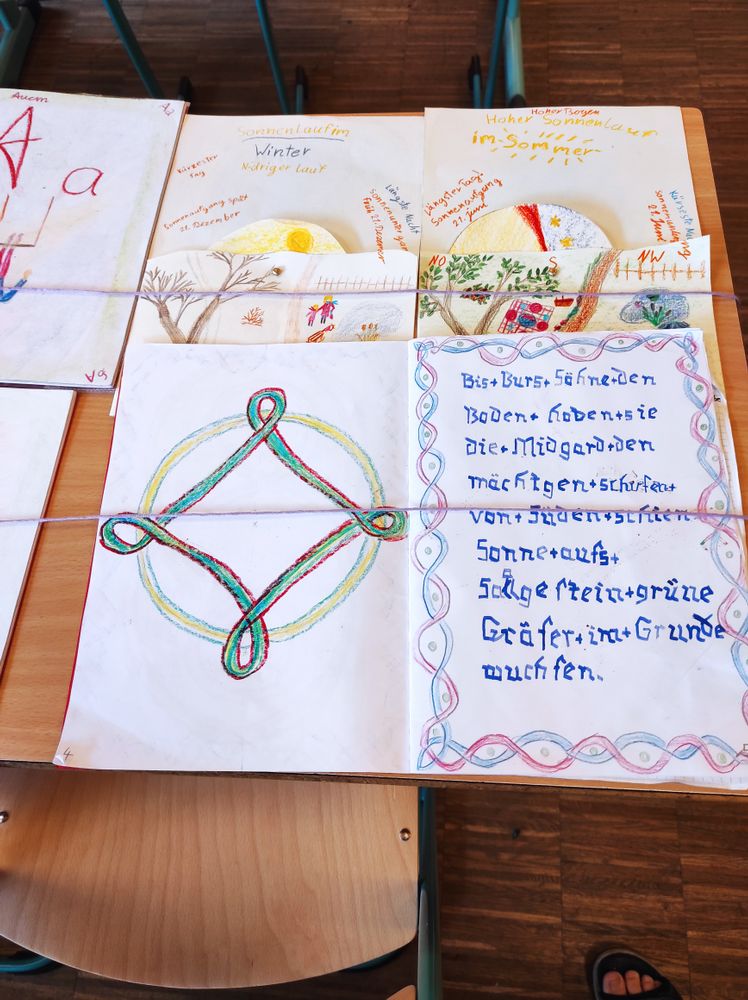 Auen
A
a
Sonnenlauf im
Winter
Nidriger Lauf
Kürzester
Tag
Sonnenaufgang Spät
21. Dezember
Längste Nacht
Sonnenuntergang
Früh 21. Dezember
Hoher Bogen
Hoher Sonnenlauf
im Sommer
Längster Tag
Sonnenaufgang
21. Juni
Kürzeste
21. Juni
NO
S
NW
Bis+Burs+Söhne+den
Boden+hoben+sie
die+Midgard+den
mächtgen+schufen+
von+Süden+schien
Sonne+aufs+
Salgestein+grüne
Gräser+im+Grunde
wuchsen.
4